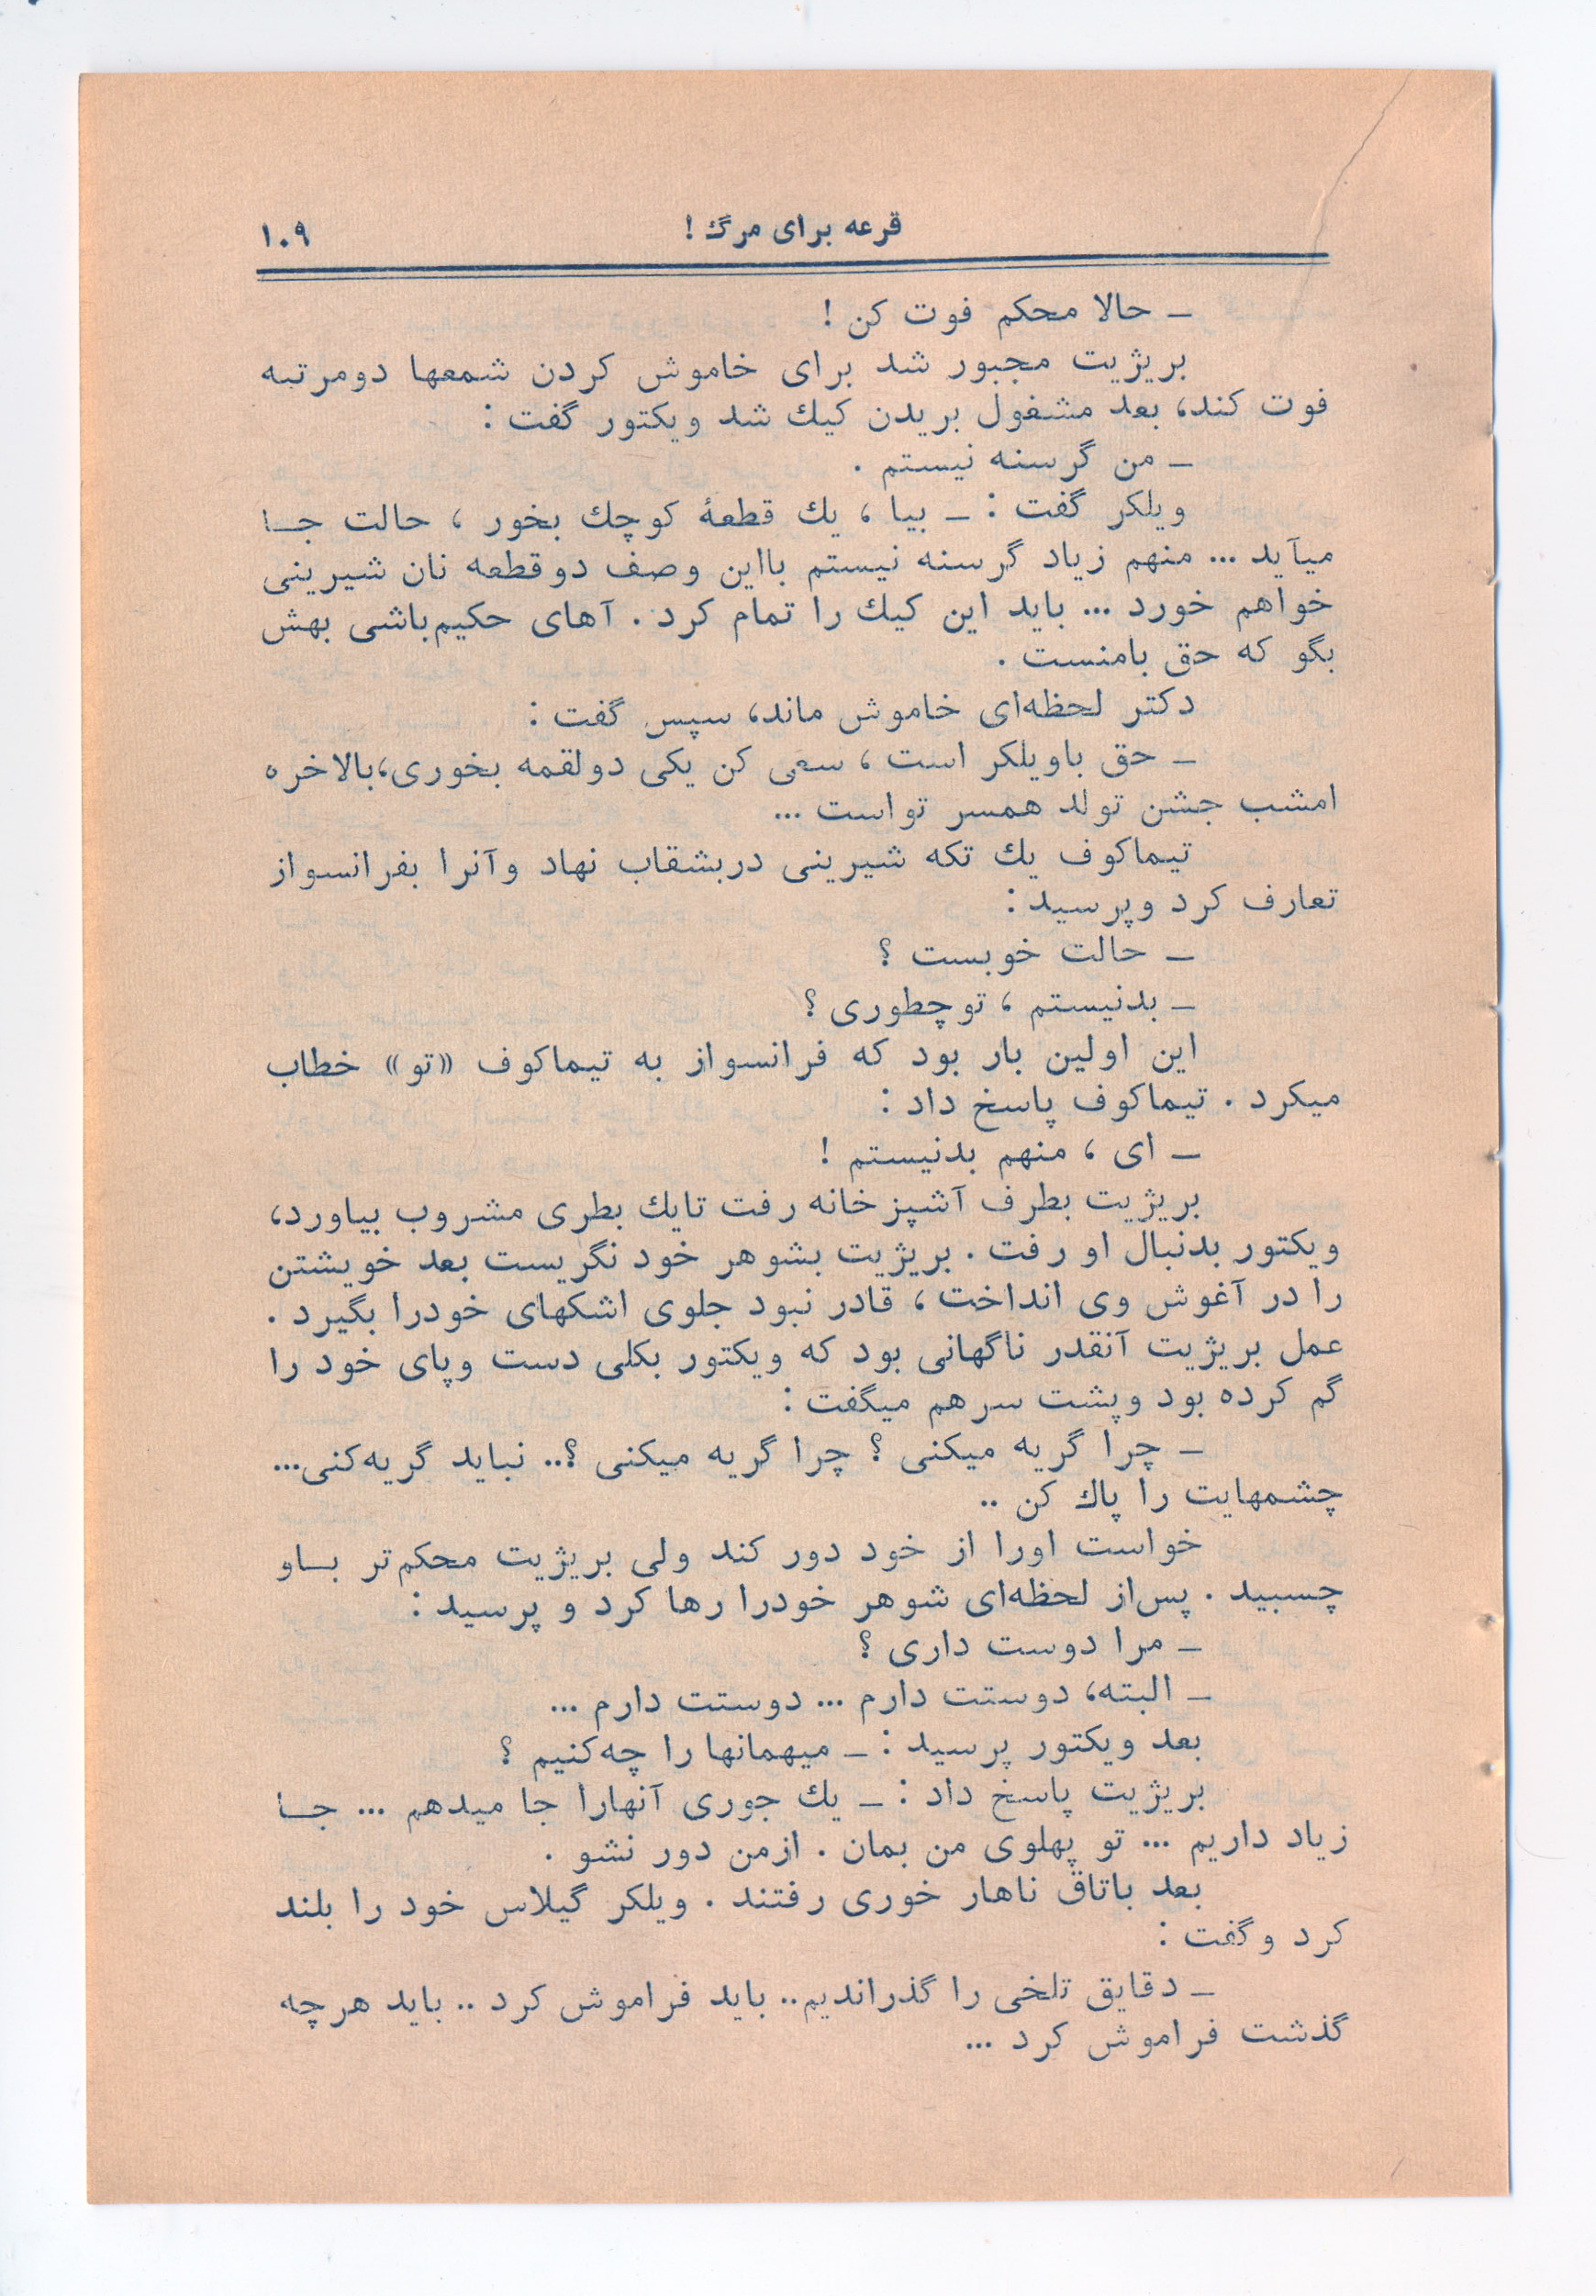 قرعه برای مرگ ! ۱۰۹
ـ حالا محکم فوت کن !
بریژیت مجبور شد برای خاموش کردن شمعها دومرتبه
فوت کند، بعد مشغول بریدن کیك شد ویکتور گفت :
ـ من گرسنه نیستم .
ویلکر گفت : ـ بیا ، یك قطعهٔ کوچك بخور ، حالت جــا
میآید ... منهم زیاد گرسنه نیستم بااین وصف دوقطعه نان شیرینی
خواهم خورد ... باید این کیك را تمام کرد . آهای حکیم‌باشی بهش
بگو که حق بامنست .
دکتر لحظه‌ای خاموش ماند، سپس گفت :
ـ حق باویلکر است ، سعی کن یکی دولقمه بخوری،بالاخره
امشب جشن تولد همسر تواست ...
تیماکوف یك تکه شیرینی دربشقاب نهاد وآنرا بفرانسواز
تعارف کرد وپرسید :
ـ حالت خوبست ؟
ـ بدنیستم ، توچطوری ؟
این اولین بار بود که فرانسواز به تیماکوف «تو» خطاب
میکرد . تیماکوف پاسخ داد :
ـ ای ، منهم بدنیستم !
بریژیت بطرف آشپزخانه رفت تایك بطری مشروب بیاورد،
ویکتور بدنبال او رفت . بریژیت بشوهر خود نگریست بعد خویشتن
را در آغوش وی انداخت ، قادر نبود جلوی اشکهای خودرا بگیرد .
عمل بریژیت آنقدر ناگهانی بود که ویکتور بکلی دست وپای خود را
گم کرده بود وپشت سرهم میگفت :
ـ چرا گریه میکنی ؟ چرا گریه میکنی ؟.. نباید گریه‌کنی...
چشمهایت را پاك کن ..
خواست اورا از خود دور کند ولی بریژیت محکم‌تر بــاو
چسبید . پس‌از لحظه‌ای شوهر خودرا رها کرد و پرسید :
ـ مرا دوست داری ؟
ـ البته، دوستت دارم ... دوستت دارم ...
بعد ویکتور پرسید : ـ میهمانها را چه‌کنیم ؟
بریژیت پاسخ داد : ـ یك جوری آنهارا جا میدهم ... جــا
زیاد داریم ... تو پهلوی من بمان . ازمن دور نشو .
بعد باتاق ناهار خوری رفتند . ویلکر گیلاس خود را بلند
کرد وگفت :
ـ دقایق تلخی را گذراندیم.. باید فراموش کرد .. باید هرچه
گذشت فراموش کرد ...